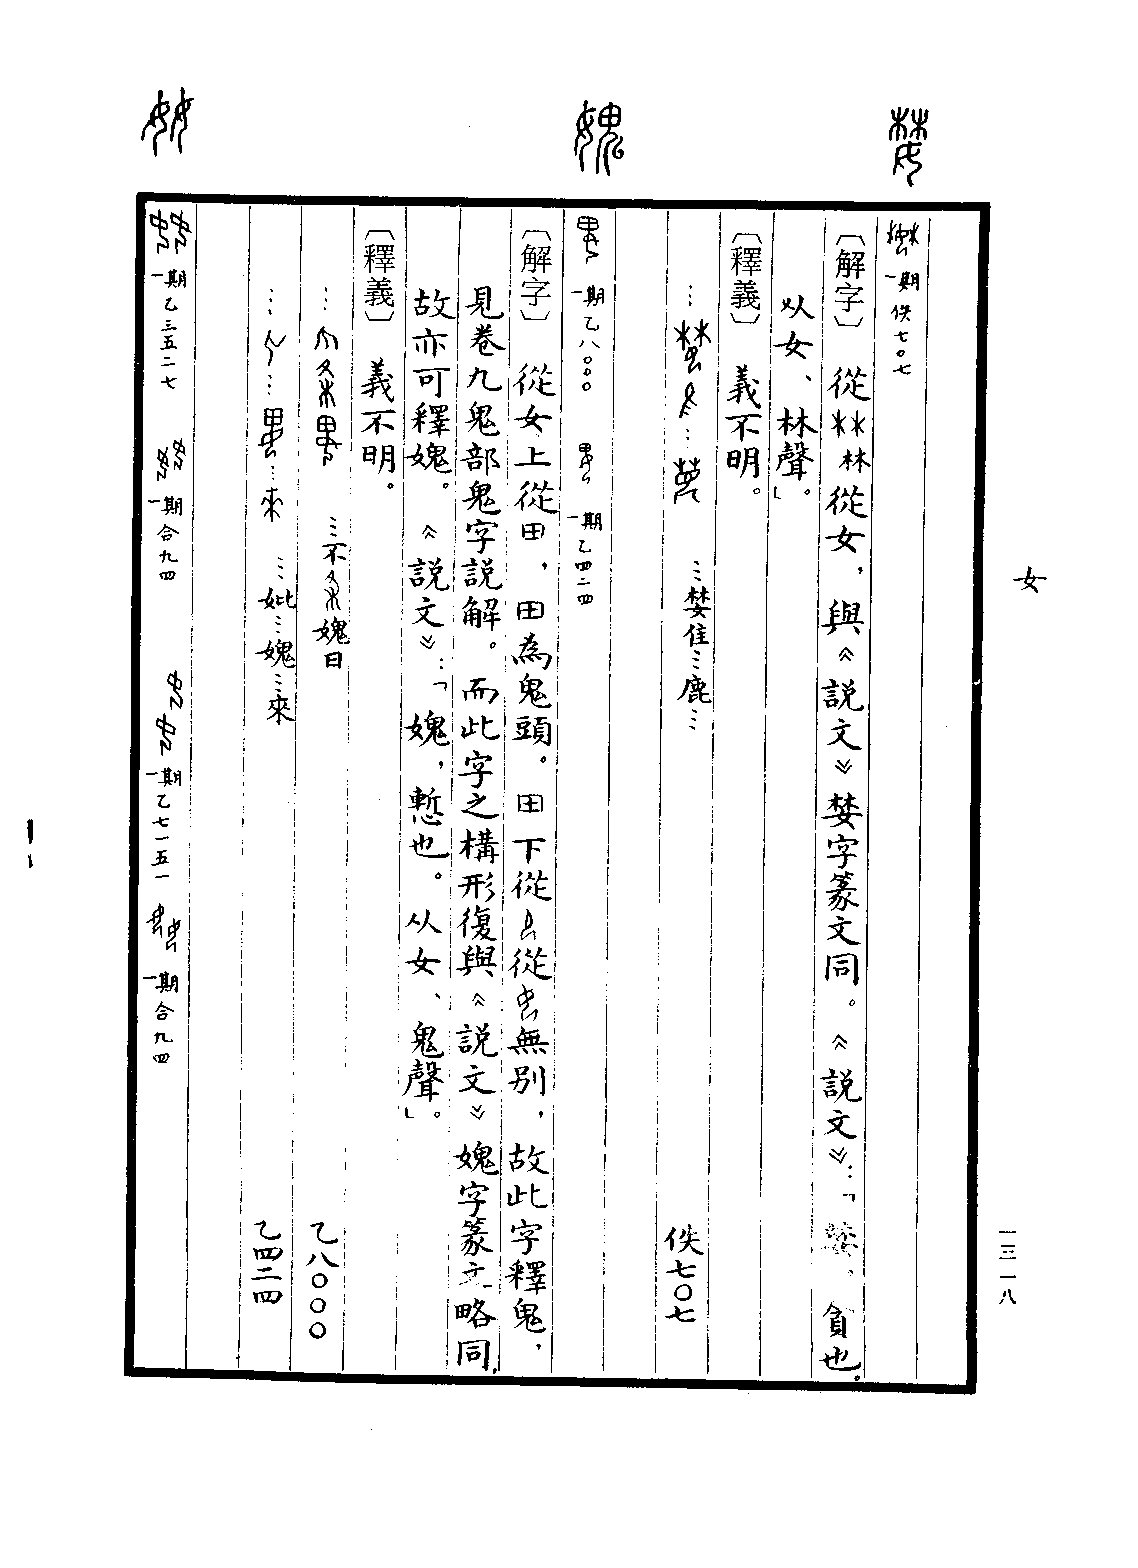 女
一三一八
婪
一期 佚七〇七
〔解字〕 從林從女，與《説文》婪字篆文同。《説文》：「婪，貪也。
从女、林聲」。
〔釋義〕 義不明。
…婪隹…鹿… 佚七〇七
媿
一期 乙八〇〇〇 一期 乙四二四
〔解字〕 從女上從田，田為鬼頭。田下從從無別，故此字釋鬼，
見卷九鬼部鬼字説解。而此字之構形復與《説文》媿字篆文略同，
故亦可釋媿。《説文》：「媿，慙也。从女、鬼聲」。
〔釋義〕 義不明。
…不媿日 乙八〇〇〇
…妣…媿…來 乙四二四
奻
一期 乙三五二七 一期 合九四 一期 乙七一五一 一期 合九四